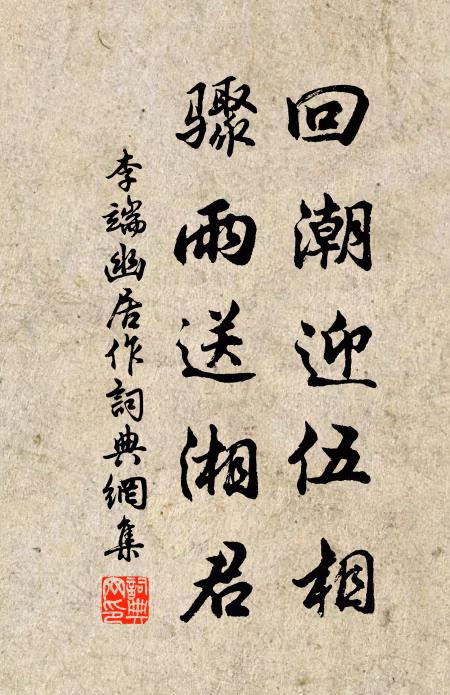 回潮迎伍相
骤雨送湘君
李端幽居作詞典網集
詞典網印